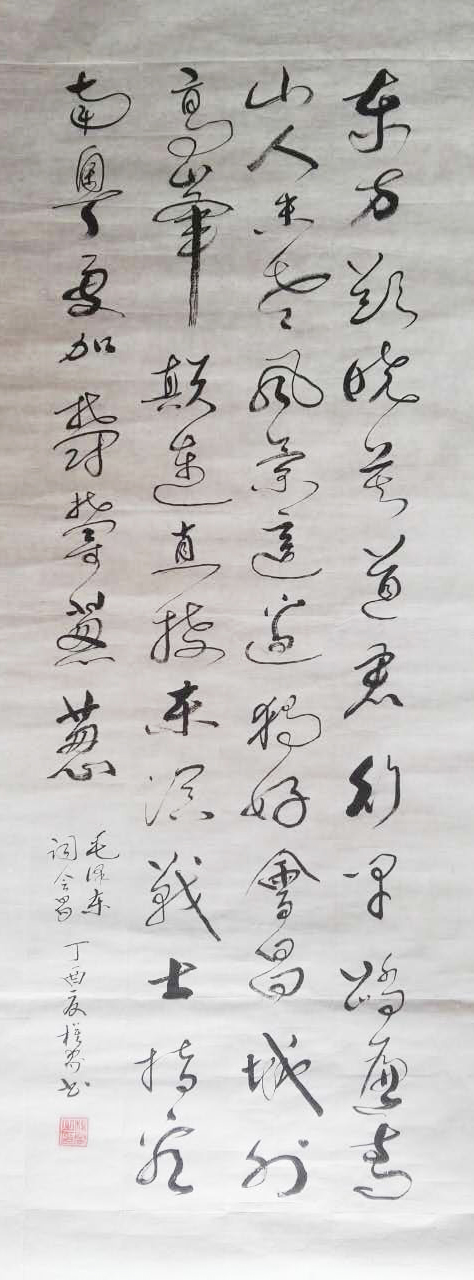 东方欲晓莫道君行早踏遍青
山人未老风景这边独好會昌城外
高峯颠连直接东溟戰士指看
南粤更加欝欝葱葱
毛泽东
词会昌
丁酉夏书